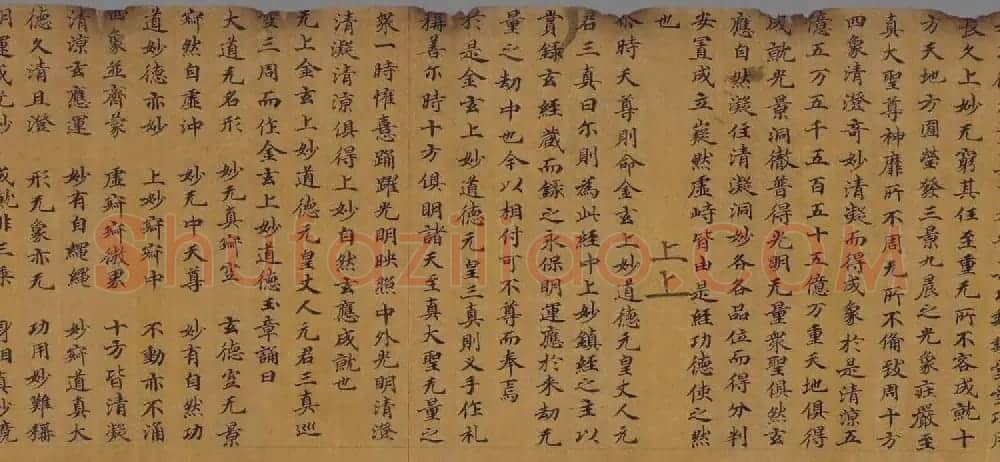 長久上妙无窮其任至重无所不容成就十
方天地方圓瑩發三景九晨之光象莊嚴至
真大聖尊神靡所不周无所不備致周十方
四象清澄奇妙清凝而得成象於是清涼五
億五万五千五百五十五億万重天地俱得
成就光景洞徹普得光明无量衆聖俱然玄
應自然凝住清凝洞妙各各品位而得分判
安置成立嶷然虛峙皆由是經功德使之然
也
上上
尒時天尊則命金玄上妙道德元皇丈人元
君三真曰尒則為此經中上妙鎮經之主以
賞錄玄經藏而錄之永保明運應於来劫无
量之劫中也今以相付可不尊而奉焉
於是金玄上妙道德元皇三真則叉手作礼
稱善尒時十方俱明諸天至真大聖无量之
衆一時懽憙踊躍光明映照中外光明清澄
清凝清涼俱得上妙自然玄應成就也
元上金玄上妙道德元皇丈人元君三真巡
三周而作金玄上妙道德玉章誦曰
大道无名形 妙无真 玄德 无景
然自虛沖 妙无中天尊 妙有自然功
道妙德亦妙 上妙 中 不動亦不涌
象並齊蒙 虛 微累 十方皆清凝
清涼玄應運 妙有自繩繩 妙 道真大
德久清且澄 形无象亦无 功用妙難稱
Shufaziliao.COM